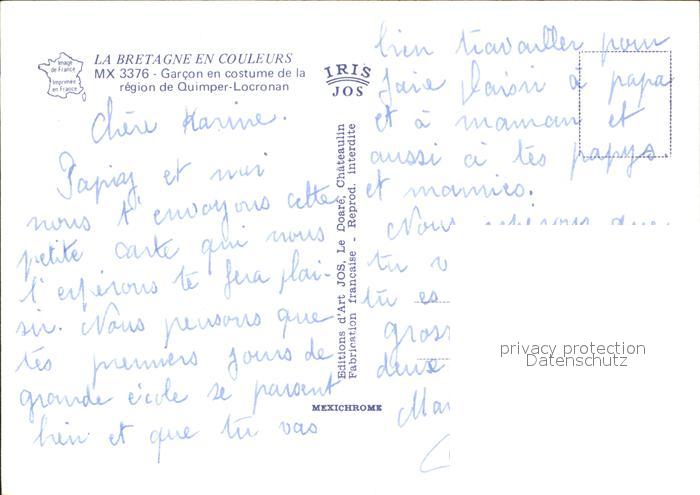 Image
de France
Imprimée
en France
LA BRETAGNE EN COULEURS
MX 3376 - Garçon en costume de la
région de Quimper-Locronan
IRIS
JOS
Editions d'Art JOS, Le Doaré, Châteaulin
Fabrication française - Reprod. interdite
MEXICHROME
Chère Karine.
Papiy et moi
nous t'envoyons cette
petite carte qui nous
l'espérons te fera plai-
sir. Nous pensons que
tes premiers jours de
grande école se passent
bien et que tu vas
bien travailler pour
faire plaisir à papa
et à maman et
aussi à tes papys.
et mamies.
Nous espérons que
tu v
tu es
gross
deux
Mar
privacy protection
Datenschutz